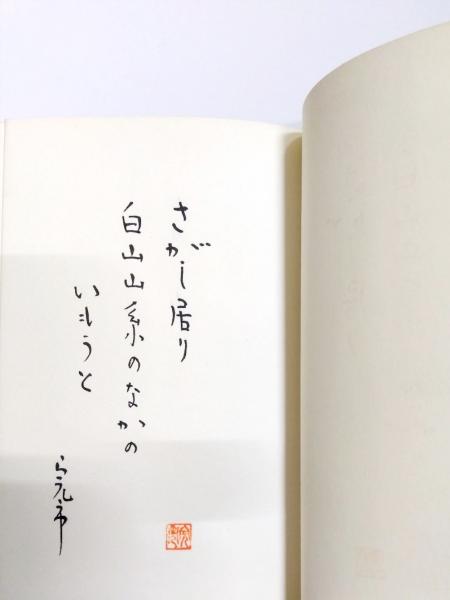 さがし居り
白山山系のなかの
いもうと